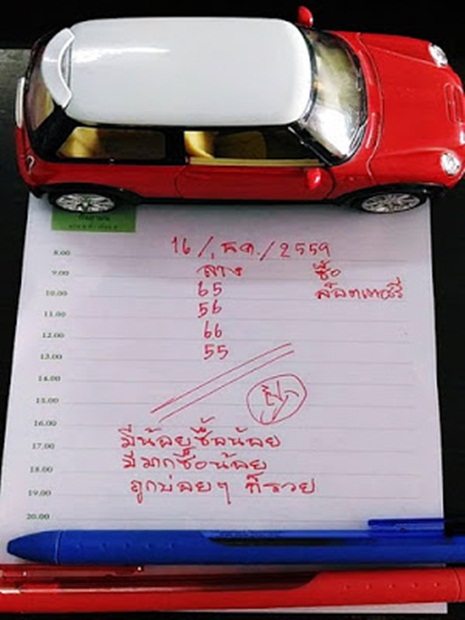 16/ธ.ค./2559
ล่าง ซื้อ
65 ล๊อตเตอรี่
56
66
55
มีน้อยซื้อน้อย
มีมากซื้อน้อย
ถูกบ่อยๆ ก็รวย
8.00
9.00
10.00
11.00
12.00
13.00
14.00
15.00
16.00
17.00
18.00
19.00
20.00